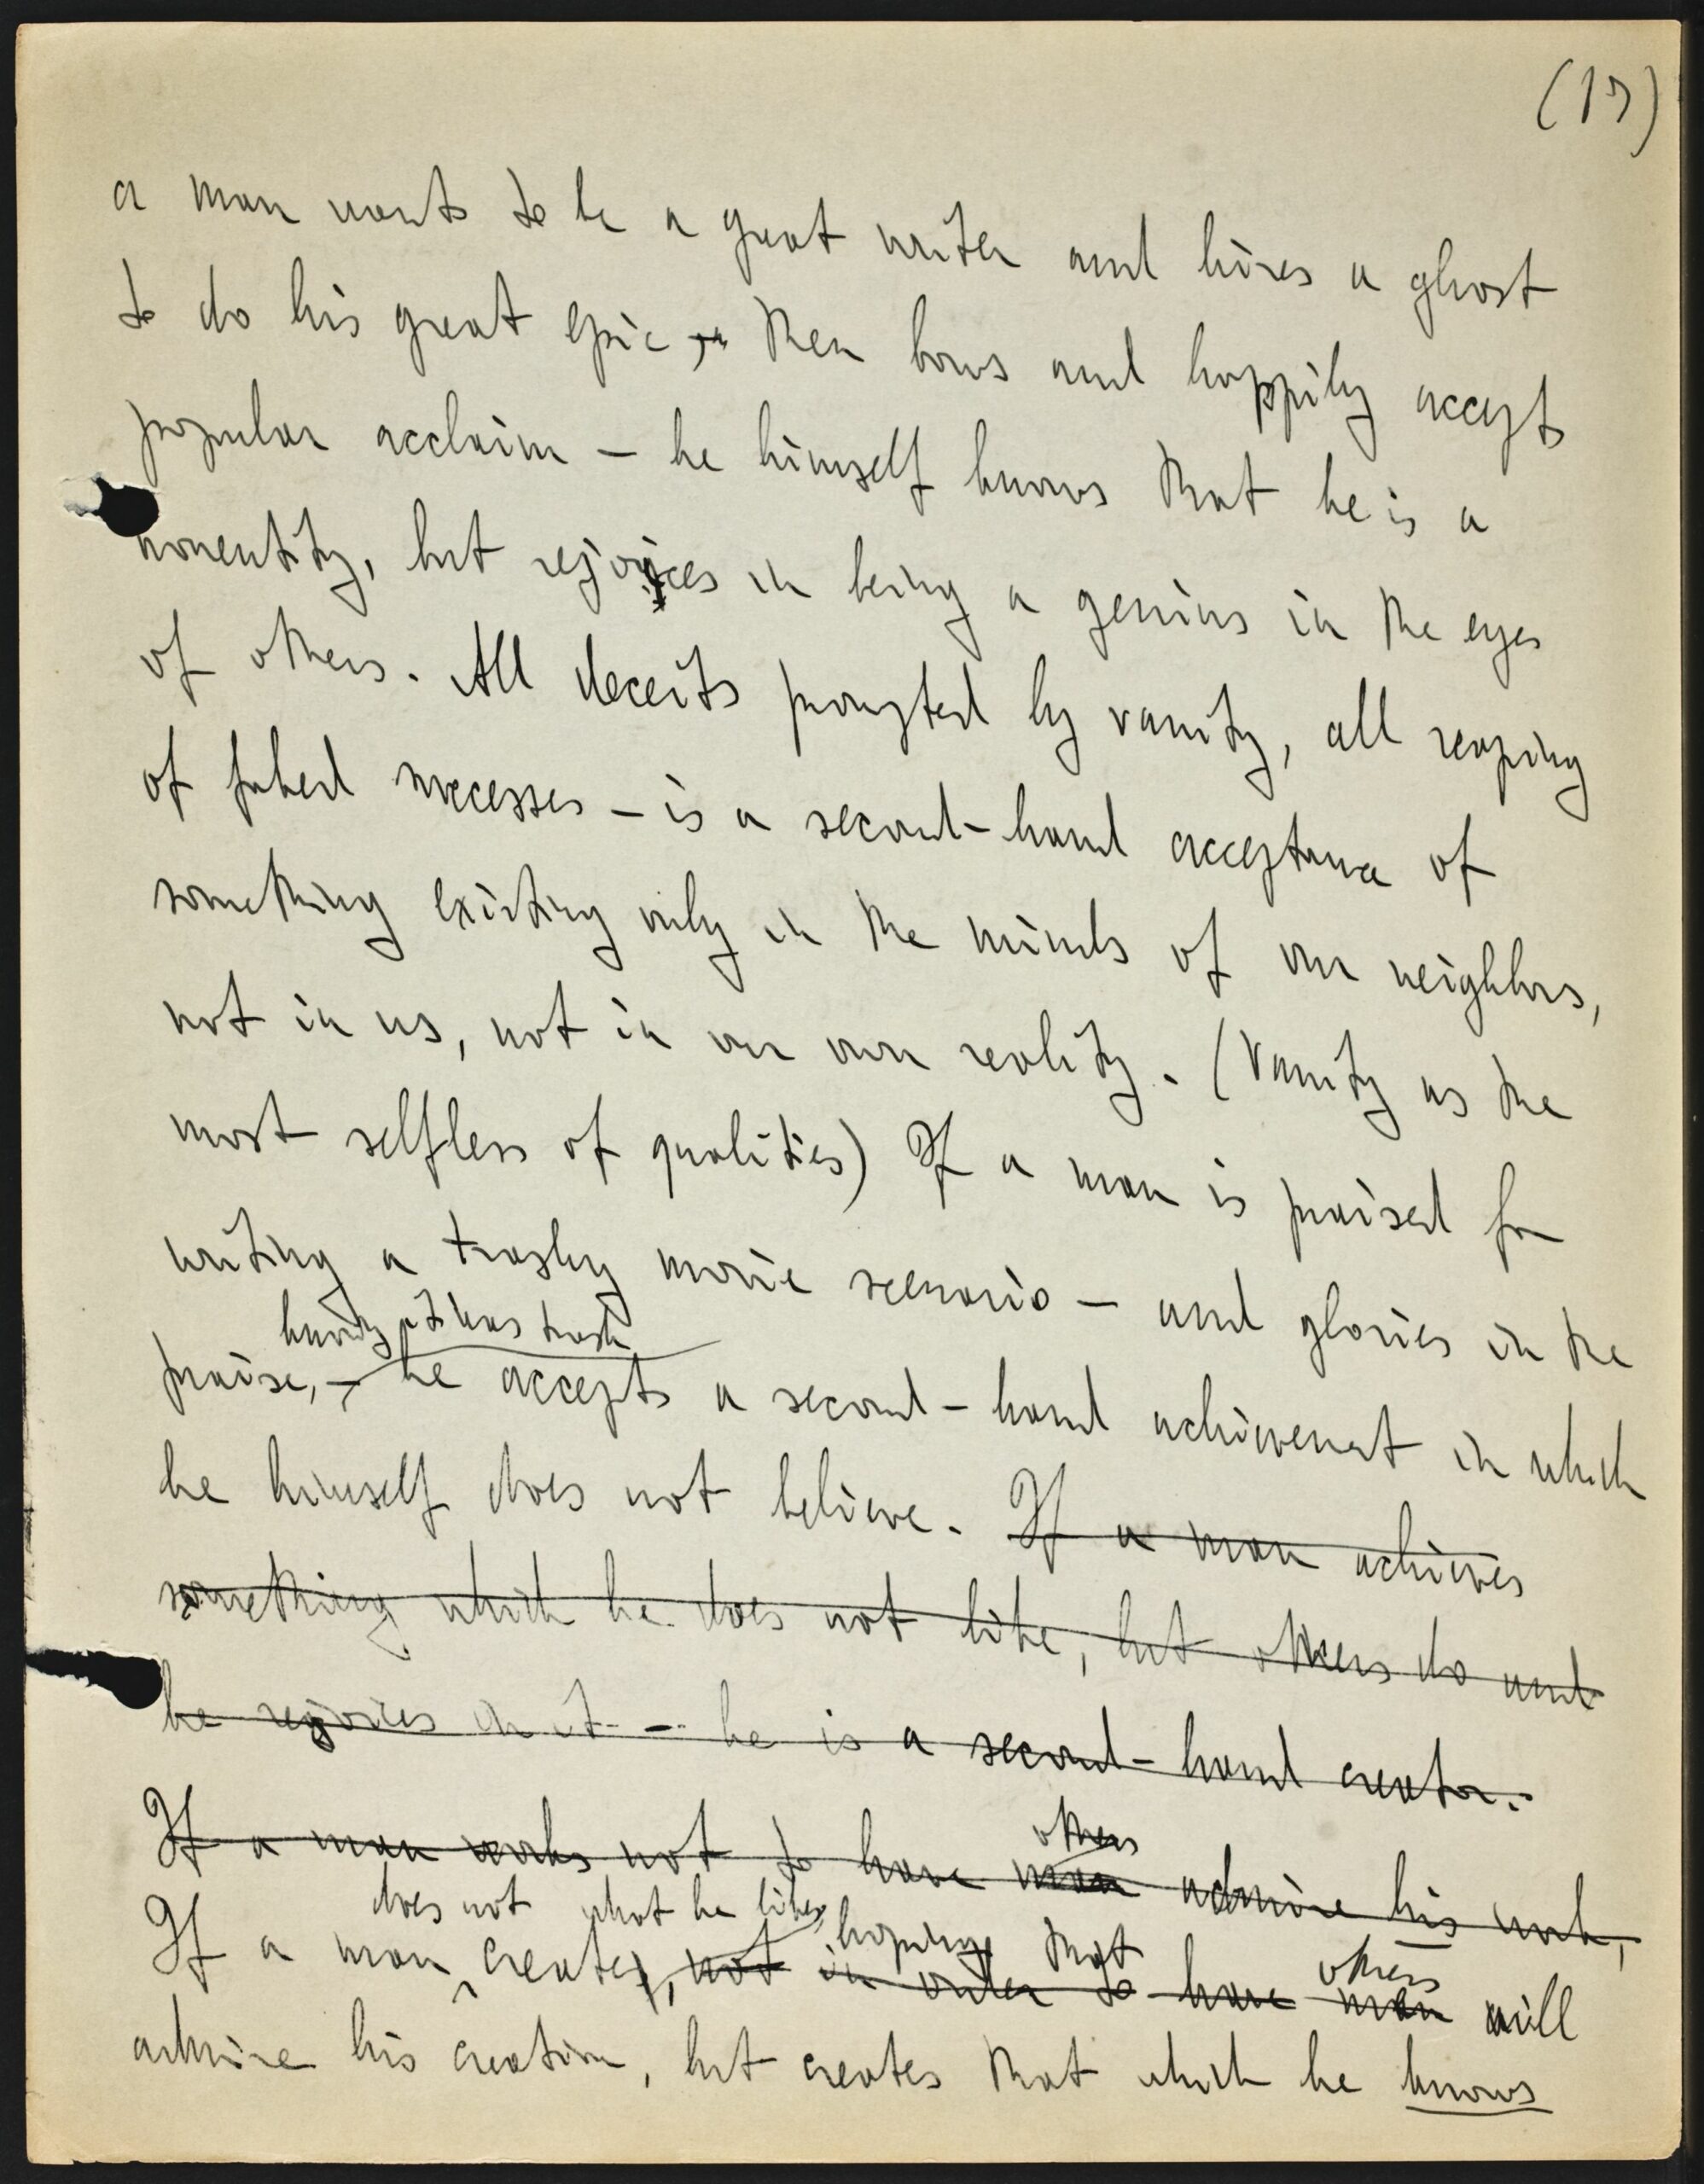 (17)
a man wants to be a great writer and hires a ghost
to do his great epic, then bows and happily accepts
popular acclaim – he himself knows that he is a
nonentity, but rejoices in being a genius in the eyes
of others. All deceits prompted by vanity, all reaping
of faked successes – is a second-hand acceptance of
something existing only in the minds of our neighbors,
not in us, not in our own reality. (Vanity as the
most selfless of qualities) If a man is praised for
writing a trashy movie scenario – and glories in the
knowing it was trash
praise, – he accepts a second-hand achievement in which
he himself does not believe. If a man achieves
something which he does not like, but others do and
he rejoices in it – he is a second-hand creator.
others
If a man works not to have man admire his work,
does not what he likes, hoping that others
If a man creates, not in order to have men will
admire his creation, but creates that which he knows